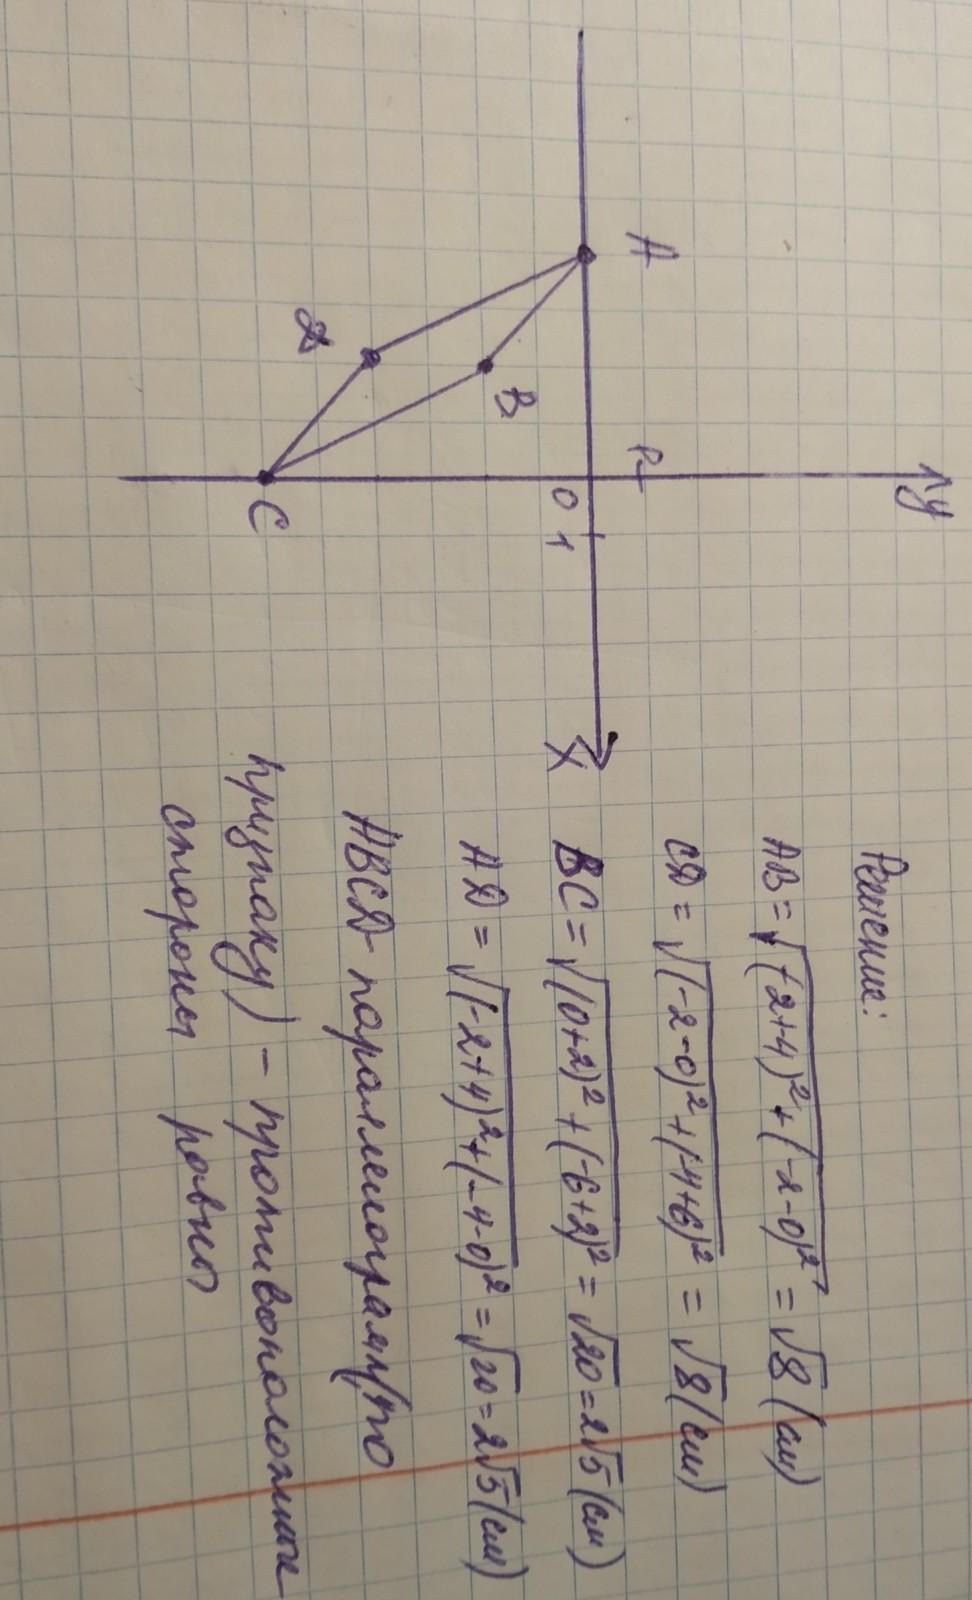 y
A
1
0
1
X
B
D
C
Решение:
AB = √(-2+4)² + (-2-0)² = √8 (см)
CD = √(-2-0)² + (-4+6)² = √8 (см)
BC = √(0+2)² + (-6+2)² = √20 = 2√5 (см)
AD = √(-2+4)² + (-4-0)² = √20 = 2√5 (см)
ABCD - параллелограмм (по
признаку) - противоположные
стороны равны